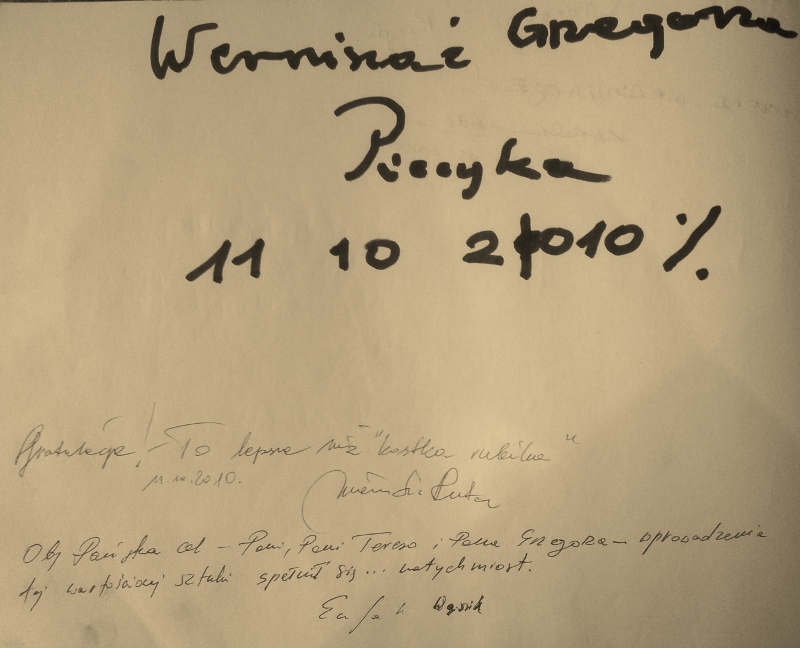 Wernisaż Grzegorza
Pieczyka
11 10 2010 %
Gratulacje! – To lepsze niż "kostka rubika"
11.10.2010.
Oby Państwa cel – Pani, Pani Tereso i Pana Grzegorza – wprowadzenia
tej wartościowej sztuki spełnił się... natychmiast.